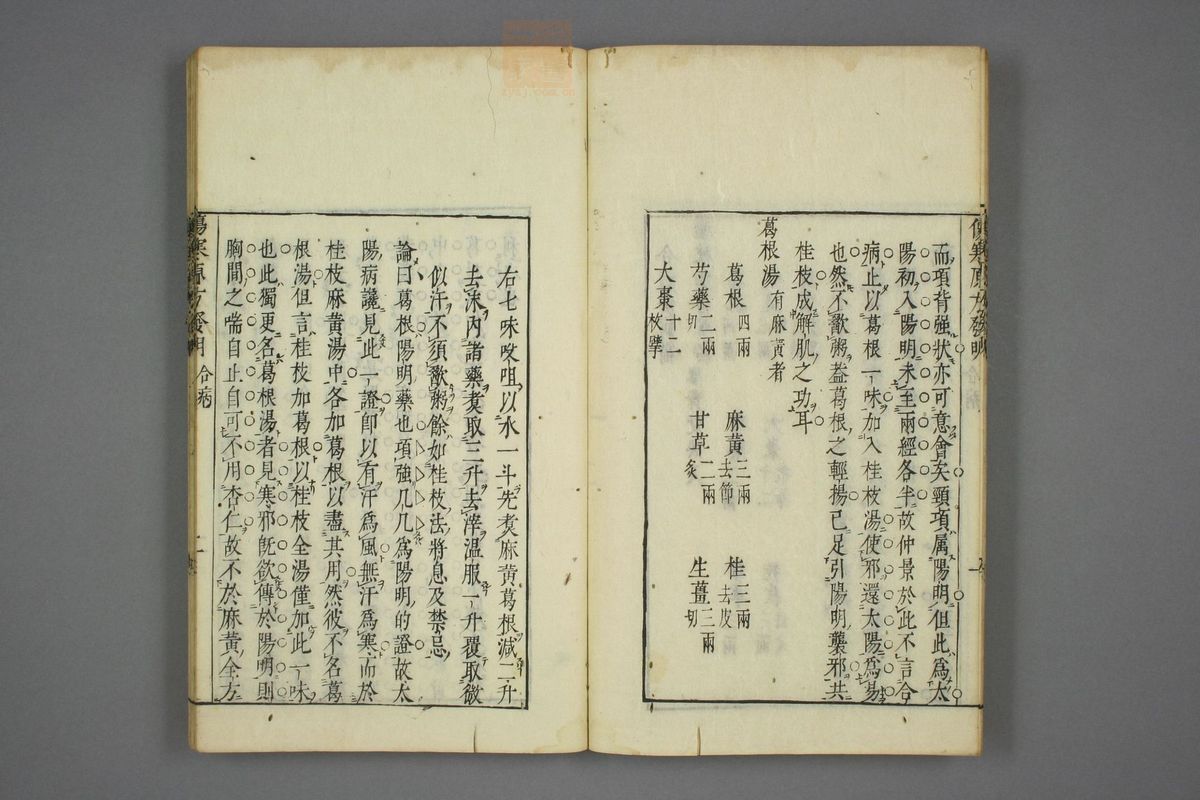 而項背強狀亦可意會矣頸項属陽明但此為太
陽初入陽明未至兩經各半故仲景於此不言合
病止以葛根一味加入桂枝湯使邪還太陽為易
也然不歠粥葢葛根之輕揚已足引陽明襲邪共
桂枝成解肌之功耳
葛根湯 有麻黄者
葛根四兩 麻黄三兩去節 桂三兩去皮
芍藥二兩切 甘草二兩炙 生薑三兩切
大棗十二枚擘
右七味㕮咀以水一斗先煑麻黄葛根減二升
去沫内諸藥煑取三升去滓温服一升覆取微
似汗不須歠粥餘如桂枝法將息及禁忌
論曰葛根陽明藥也項強几几為陽明的證故太
陽病纔見此一證即以有汗為風無汗為寒而於
桂枝麻黄湯中各加葛根以盡其用然彼不名葛
根湯但言桂枝加葛根以桂枝全湯僅加此一味
也此獨更名葛根湯者見寒邪旣欲傳於陽明則
胸間之喘自止自可不用杏仁故不於麻黄全方
傷寒原方發明 合病 二